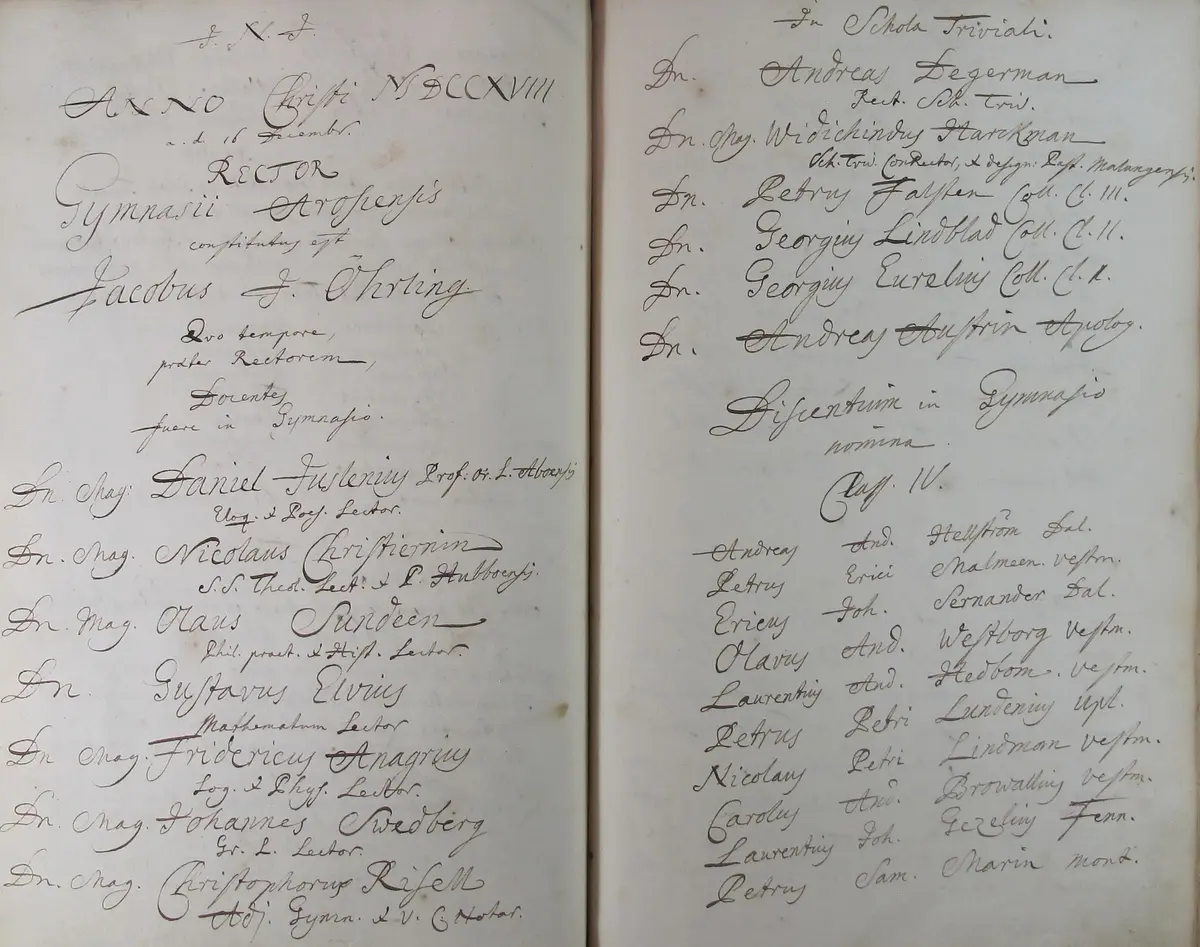 J. N. J.
ANNO Christi MDCCXVIII
a. d. 16 Decembr.
RECTOR
Gymnasii Arosiensis
constitutus est
Jacobus J. Öhrling.
Qvo tempore,
præter Rectorem,
Docentes
fuere in Gymnasio.
Dn. Mag. Daniel Juslenius Prof: or. L. Aboensis
Eloq. & Poës. Lector.
Dn. Mag. Nicolaus Christiernin
S.S. Theol. Lect. & P. Hubboens.
Dn. Mag. Olaus Sundeen
Phil. pract. & Hist. Lector.
Dn. Gustavus Elvius
Mathematum Lector
Dn Mag. Fridericus Anagrius
Log. & Phys. Lector.
Dn. Mag. Johannes Swedberg
Gr. L. Lector.
Dn. Mag. Christophorus Risell
Adj. Gymn. & V. C. Notar.
In Schola Triviali.
Dn. Andreas Degerman
Rect. Sch. Triv.
Dn. Mag. Widichindus Harckman
Sch. Triv. ConRector, & design. Past. Malungensis.
Dn. Petrus Falsten Coll. Cl. III.
Dn. Georgius Lindblad Coll. Cl. II.
Dn. Georgius Eurelius Coll. Cl. I.
Dn. Andreas Austrin Apolog.
Discentium in Gymnasio
nomina.
Class. IV.
Andreas And. Hellström Dal.
Petrus Erici Malmeen. vestm.
Ericus Joh. Sernander Dal.
Olavus And. Westborg vestm.
Laurentius And. Hedbom. vestm.
Petrus Petri Lundenius upl.
Nicolaus Petri Lindman vestm.
Carolus And. Browallius vestm.
Laurentius Joh. Gezelius Fenn.
Petrus Sam. Marin mont.